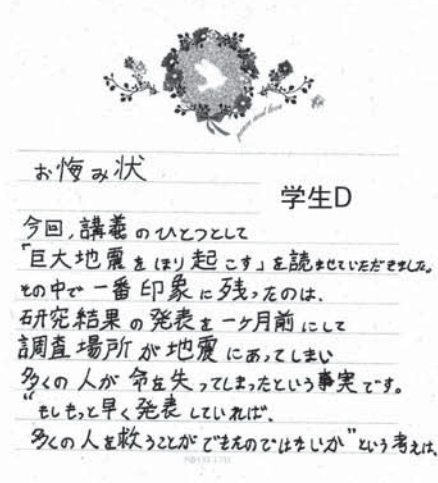 peace and love
お悔み状
学生D
今回、講義のひとつとして
「巨大地震をほり起こす」を読ませていただきました。
その中で一番印象に残ったのは、
研究結果の発表を一ヶ月前にして
調査場所が地震にあってしまい
多くの人が命を失ってしまったという事実です。
"もしもっと早く発表していれば、
多くの人を救うことができたのではないか"という考えは、